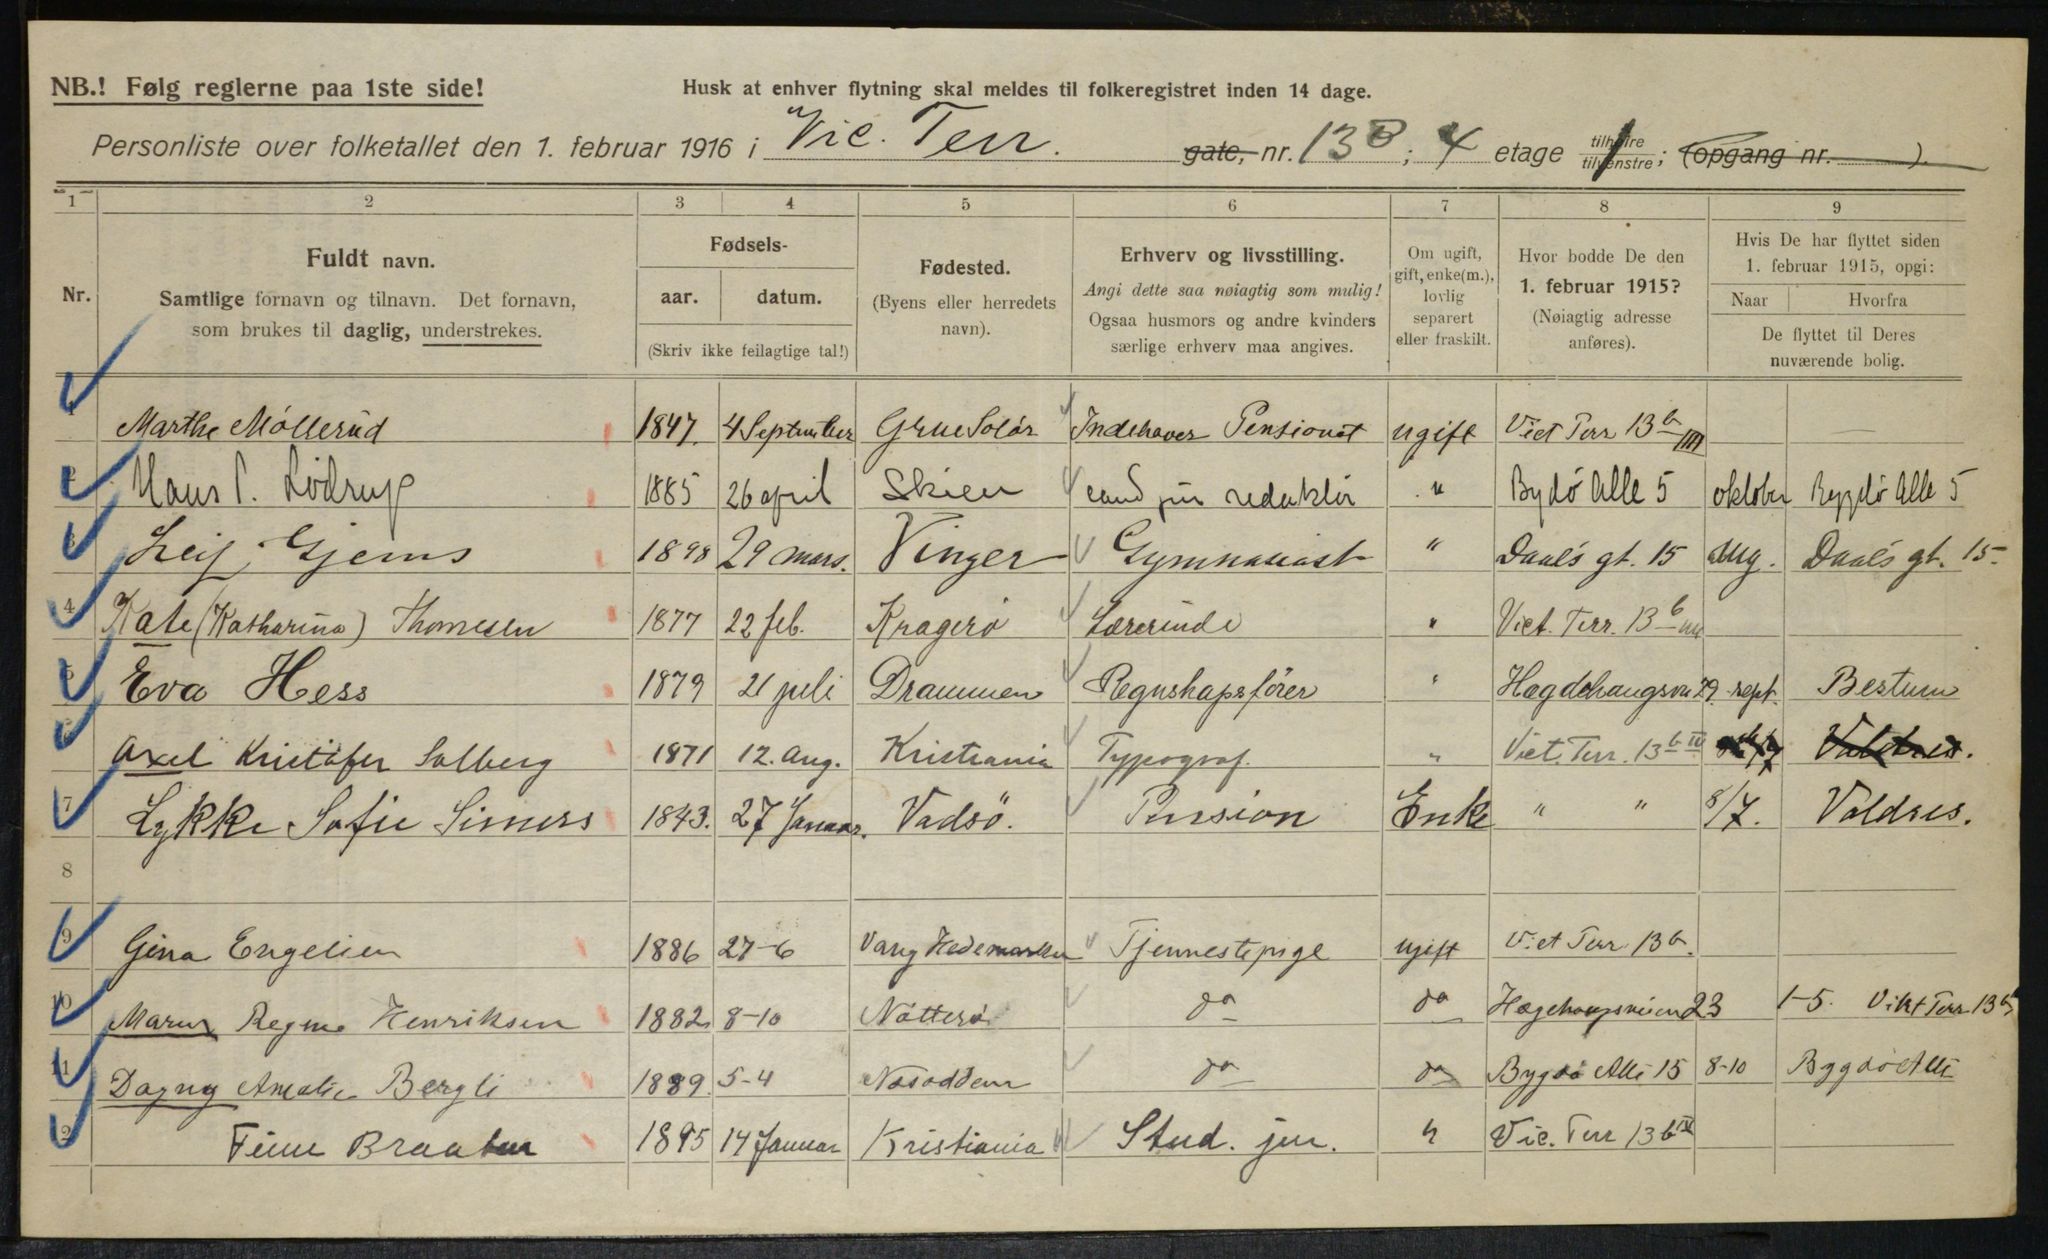 NB.! Følg reglerne paa 1ste side!
Husk at enhver flytning skal meldes til folkeregistret inden 14 dage.
Personliste over folketallet den 1. februar 1916 i Vic. Terr. gate, nr. 13B; 4 etage tilhøire tilvenstre; (opgang nr. ).
1 2 3 4 5 6 7 8 9
Nr.
Fuldt navn.
Samtlige fornavn og tilnavn. Det fornavn,
som brukes til daglig, understrekes.
Fødsels-
aar. datum.
(Skriv ikke feilagtige tal!)
Fødested.
(Byens eller herredets
navn).
Erhverv og livsstilling.
Angi dette saa nøiagtig som mulig!
Ogsaa husmors og andre kvinders
særlige erhverv maa angives.
Om ugift,
gift, enke(m.),
lovlig
separert
eller fraskilt.
Hvor bodde De den
1. februar 1915?
(Nøiagtig adresse
anføres).
Hvis De har flyttet siden
1. februar 1915, opgi:
Naar Hvorfra
De flyttet til Deres
nuværende bolig.
1 Marthe Möllerud 1847. 4 September Grue Solör Indehaver Pensionat ugift Vict Terr 13b III
2 Hans P. Lödrup 1885 26 april Skien cand jur redaktör " Bydö Alle 5 oktober Bygdö Alle 5
3 Leif Gjems 1898 29 mars. Vinger Gymnasiast " Daaes gt. 15 Aug. Daaes gt. 15
4 Kate (Katharina) Thomesen 1877 22 feb. Kragerö Lærerinde " Vict. Terr. 13b
5 Eva Hess 1879 21 juli Drammen Regnskapsförer " Hægdehaugsvn 29. sept. Bestum
6 Axel Kristofer Solberg 1871 12. aug. Kristiania Typograf. " Vict. Terr. 13b IV Valdres.
7 Lykke Sofie Simers 1843. 27 Januar. Vadsö. Pension Enke " " 8/7. Valdres.
8
9 Gina Engelien 1886 27-6 Vang Hedemarken Tjenestepige ugift Vict Terr 13b.
10 Maren Regine Henriksen 1882 8-10 Nötterö do do Hægehaugsveien 23 1-5. Vikt Terr 13b
11 Dagny Amalie Bergli 1889. 5-4 Nesodden do do Bygdö Alle 15 8-10 Bygdö Alle
12 Finn Braaten 1895 14 Januar Kristiania Stud. jur. " Vic. Terr 13b IV